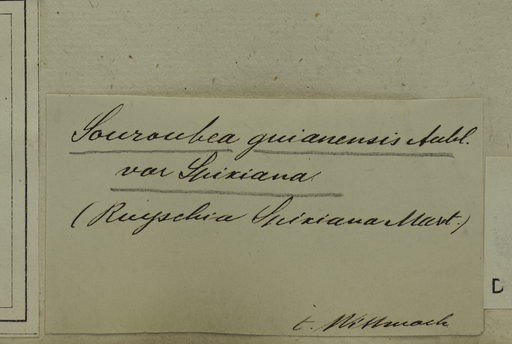 Souroubea guianensis Aubl.
var Spixiana
(Ruyschia Spixiana Mart.)
t. Wittmack
D